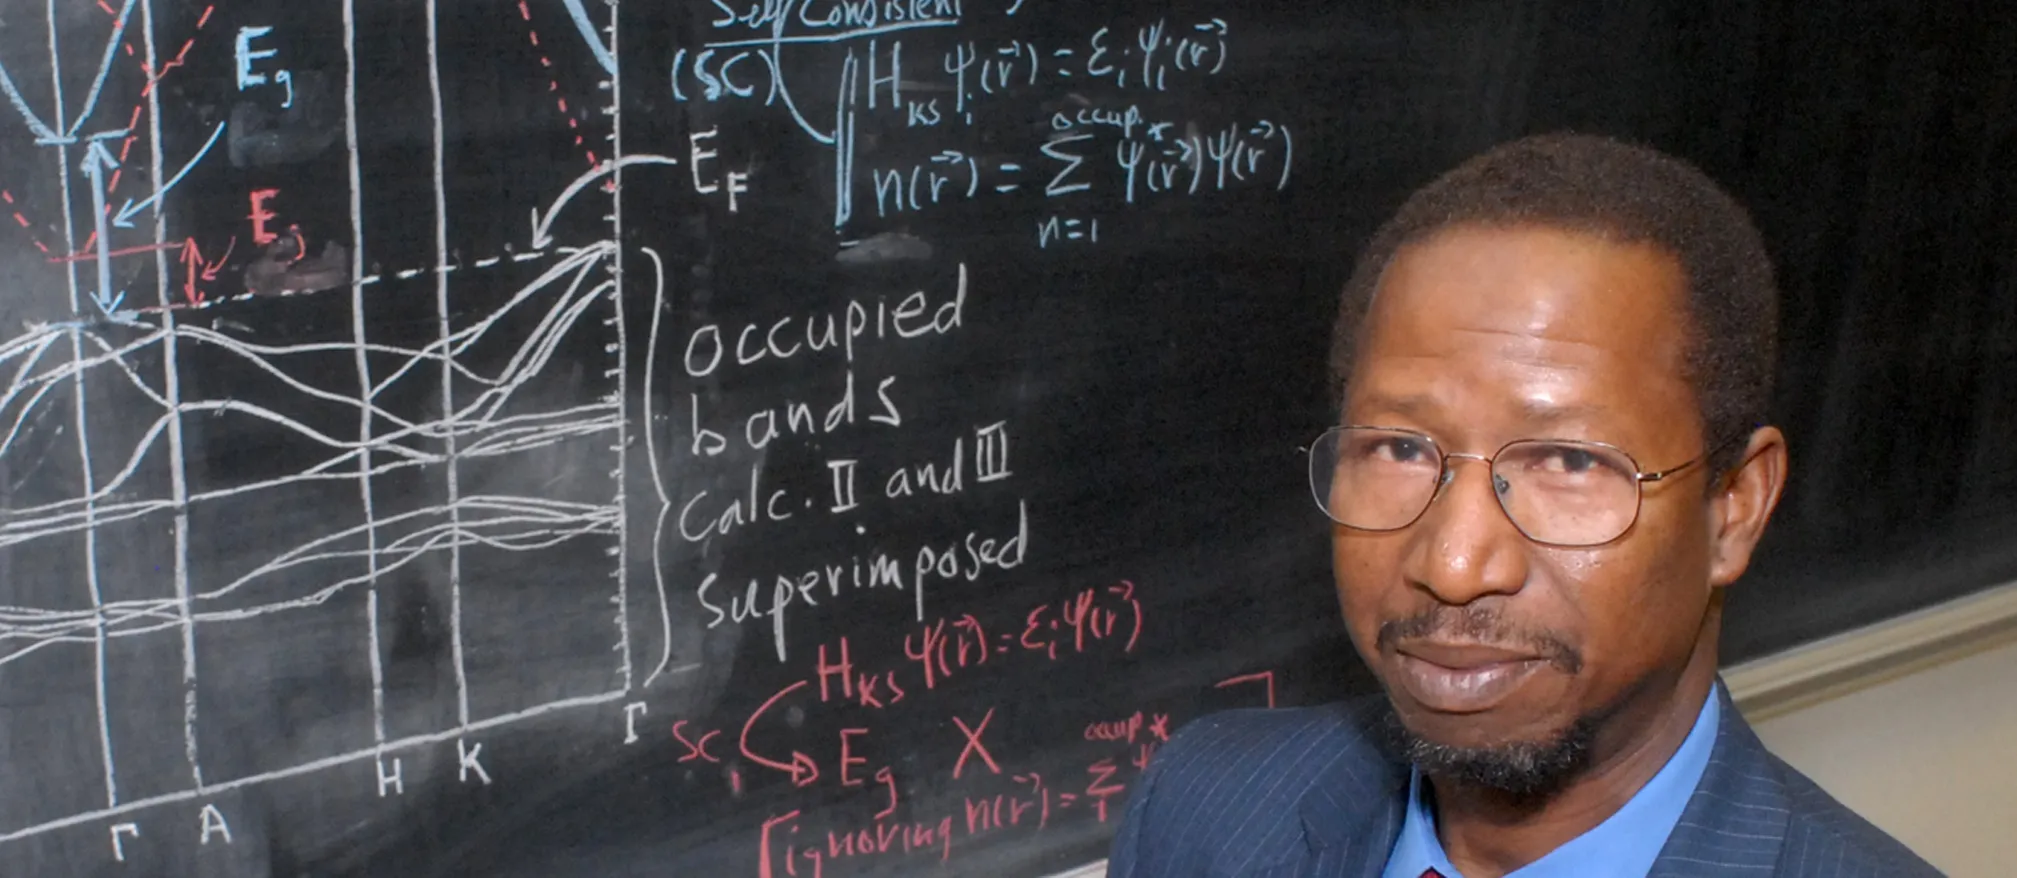 Self Consistent
(SC)
H_KS ψ_i(r⃗) = ε_i ψ_i(r⃗)
n(r⃗) = Σ_{n=1}^{occup.} ψ*(r⃗)ψ(r⃗)
E_g
E_F
E_g
occupied
bands
Calc. II and III
superimposed
H_KS ψ(r⃗) = ε_i ψ(r⃗)
SC,
E_g X
[ignoring n(r⃗) = Σ_1^{occup}
Γ A H K Γ